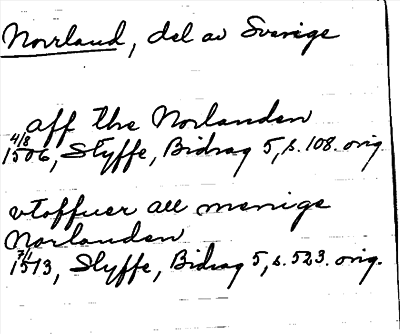 Norrland, del av Sverige
aff the Norlanden
4/8 1506, Styffe, Bidrag 5, s. 108. orig.
vtoffuer all menige
Norlanden
7/1 1513, Styffe, Bidrag 5, s. 523. orig.